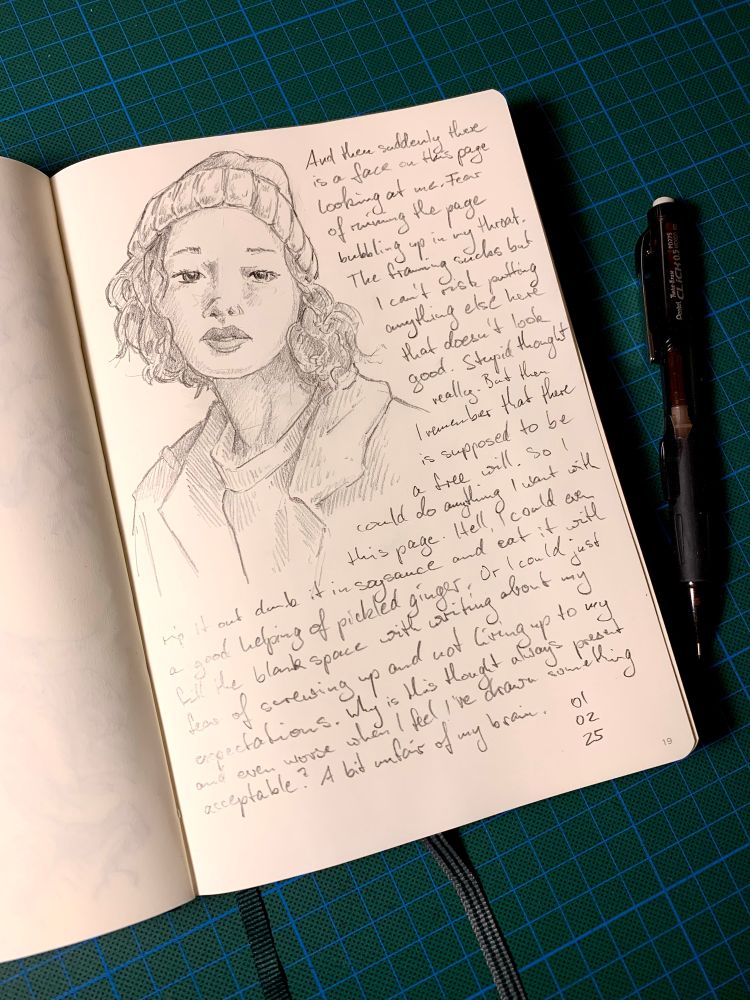 And then suddenly there
is a face on this page
looking at me. Fear
of ruining the page
bubbling up in my throat.
The framing sucks but
I can't risk putting
anything else here
that doesn't look
good. Stupid thought
really. But then
I remember that there
is supposed to be
a free will. So I
could do anything I want with
this page. Hell, I could even
rip it out dunk it in soysauce and eat it with
a good helping of pickled ginger. Or I could just
fill the blank space with writing about my
fear of screwing up and not living up to my
expectations. Why is this thought always present
and even worse when I feel I've drawn something
acceptable? A bit unfair of my brain.
01
02
25
19
Pentel
CLICK 0.5